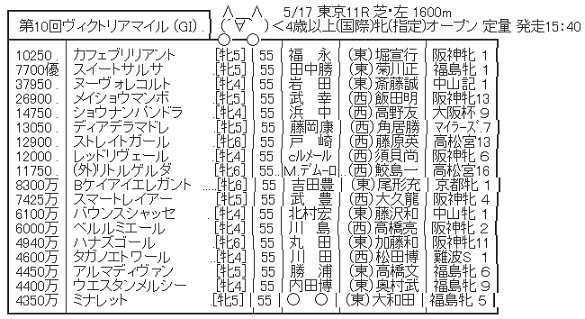 5/17 東京11R 芝・左 1600m
第10回ヴィクトリアマイル (GI) .  ( ´∀` ) <4歳以上(国際)牝(指定)オープン 定量 発走15:40
10250 . カフェブリリアント [牝5] 55 福 永 (東)堀宣行 阪神牝 1
7700優 スイートサルサ [牝5] 55 田中勝 (東)菊川正 福島牝 1
37950 . ヌーヴォレコルト [牝4] 55 岩 田 (東)斎藤誠 中山記 1
26900 . メイショウマンボ [牝5] 55 武 幸 (西)飯田明 阪神牝13
14750 . ショウナンパンドラ [牝4] 55 浜 中 (西)高野友 大阪杯 9
13050 . ディアデラマドレ [牝5] 55 藤岡康 (西)角居勝 マイラーズ.7
12900 . ストレイトガール [牝6] 55 戸 崎 (西)藤原英 高松宮13
12000 . レッドリヴェール [牝4] 55 cルメール (西)須貝尚 阪神牝 6
11750 . (外)リトルゲルダ [牝6] 55 M.デムーロ (西)鮫島一 高松宮16
8300万 Bケイアイエレガント .....[牝6] 55 吉田豊 (東)尾形充 京都牝 1
7425万 スマートレイアー [牝5] 55 武 豊 (西)大久龍 阪神牝 4
6100万 バウンスシャッセ .[牝4] 55 北村宏 (東)藤沢和 中山牝 1
6000万 ベルルミエール [牝4] 55 川 島 (西)高橋亮 阪神牝 2
4940万 ハナズゴール [牝6] 55 丸 田 (東)加藤和 阪神牝11
4600万 タガノエトワール ...[牝4] 55 川 田 (西)松田博 難波S 1
4450万 アルマディヴァン [牝5] 55 勝 浦 (東)高橋文 福島牝 6
4400万 ウエスタンメルシー [牝4] 55 内田博 (東)奥村武 福島牝 9
4350万 ミナレット [牝5] 55 ○ ○ (東)大和田 福島牝 5